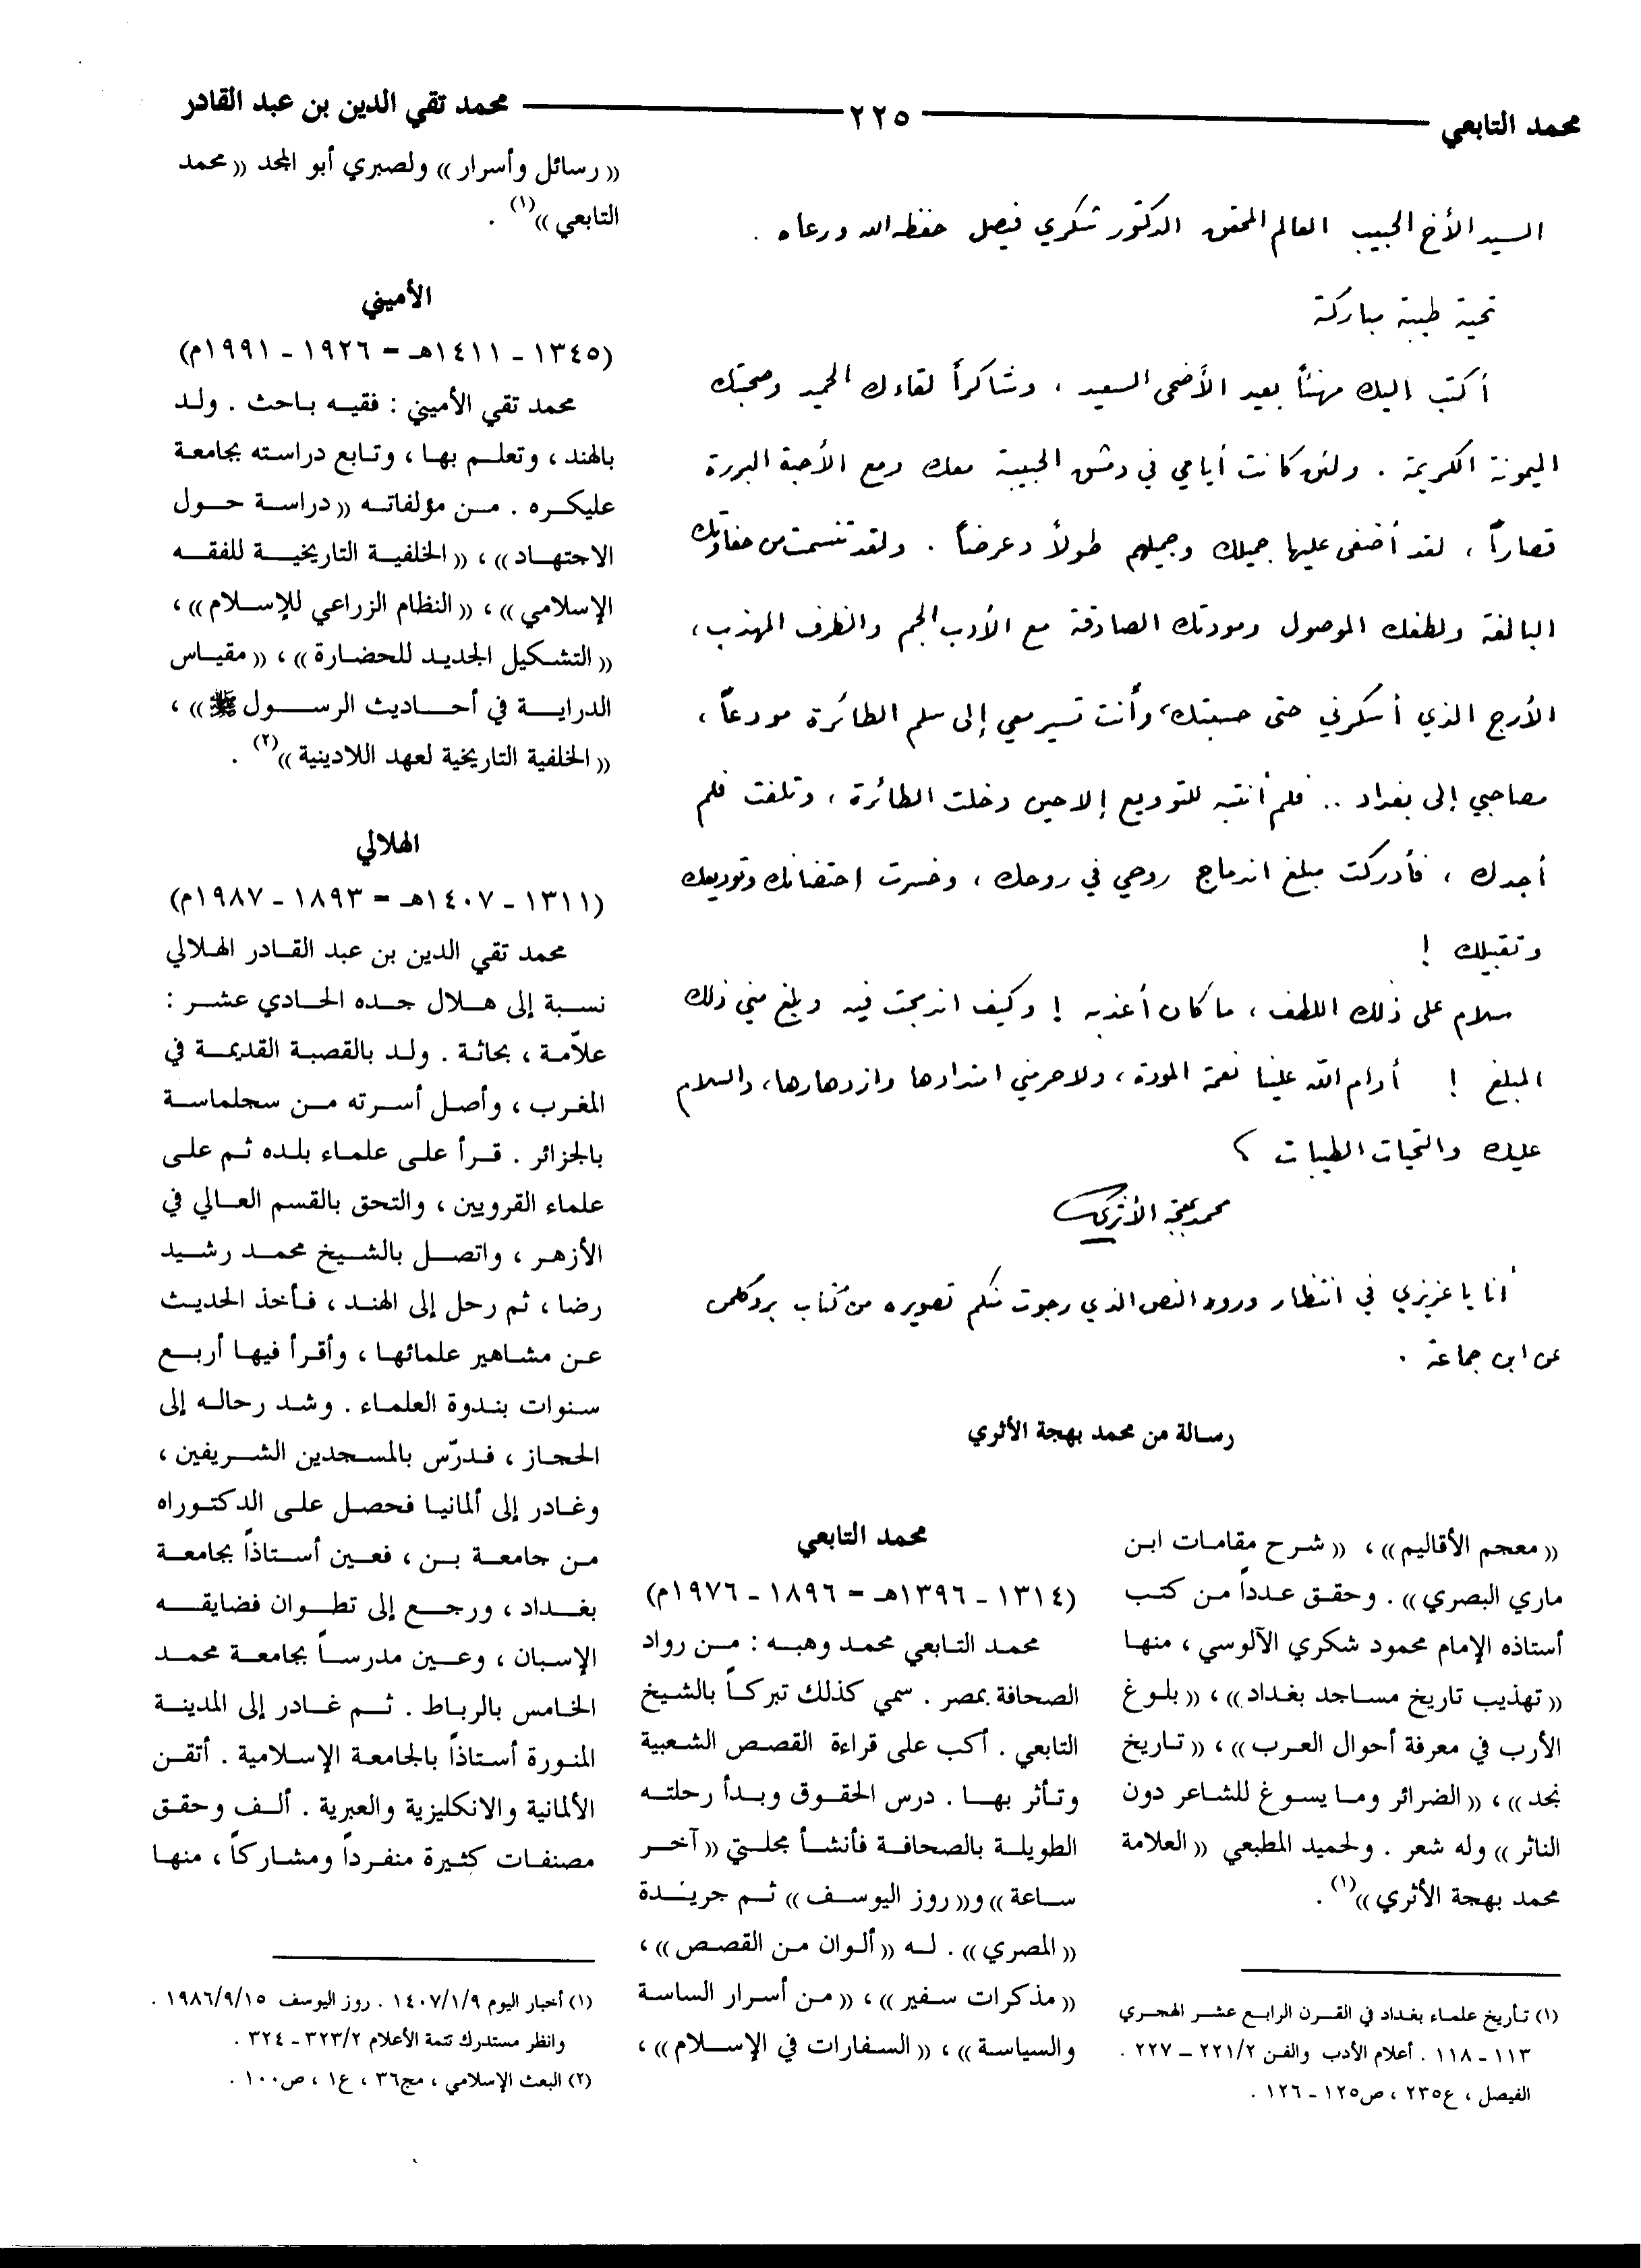 محمد التابعي
٢٢٥
محمد تقي الدين بن عبد القادر
السيد الأخ الحبيب العالم المحقق الدكتور شكري فيصل حفظه الله ورعاه .
تحية طيبة مباركة
أكتب إليك مهنئاً بعيد الأضحى السعيد ، وشاكراً لقاءك الحميد وصحبتك
الميمونة الكريمة . ولئن كانت أيامي في دمشق الحبيبة معك ومع الأحبة البررة
قصاراً ، لقد أضفى عليها جميلك وجميلهم طولاً وعرضاً . ولقد تنسمت من حفاوتك
البالغة ولطفك الموصول ومودتك الصادقة مع الأدب الجم والظرف المهذب ،
الأرج الذي أسكرني حتى حسبتك ، وأنت تسير معي إلى سلم الطائرة مودعاً ،
مصاحبي إلى بغداد .. فلم أنتبه للتوديع إلا حين دخلت الطائرة ، وتلفت فلم
أجدك ، فأدركت مبلغ اندماج روحي في روحك ، وخسرت احتضانك وتوديعك
وتقبيلك !
سلام على ذلك اللطف ، ما كان أعذبه ! وكيف اندمجت فيه وبلغ مني ذلك
المبلغ ! أدام الله علينا نعمة المودة ، ولا حرمني امتدادها وازدهارها ، والسلام
عليك والتحيات الطيبات
محمد بهجة الأثري
أنا يا عزيزي في انتظار ورود النص الذي رجوت منكم تصويره من كتاب بروكلمن
عن ابن جماعة .
رسالة من محمد بهجة الأثري
(( معجم الأقاليم )) ، (( شرح مقامات ابن
ماري البصري )) . وحقق عدداً من كتب
أستاذه الإمام محمود شكري الآلوسي ، منها
(( تهذيب تاريخ مساجد بغداد )) ، (( بلوغ
الأرب في معرفة أحوال العرب )) ، (( تاريخ
نجد )) ، (( الضرائر وما يسوغ للشاعر دون
الناثر )) وله شعر . ولحميد المطبعي (( العلامة
محمد بهجة الأثري ))(١) .
(١) تأريخ علماء بغداد في القرن الرابع عشر الهجري
١١٣ - ١١٨ . أعلام الأدب والفن ٢٢١/٢ – ٢٢٧ .
الفيصل ، ع٢٣٥ ، ص١٢٥ - ١٢٦ .
محمد التابعي
(١٣١٤ - ١٣٩٦هـ = ١٨٩٦ - ١٩٧٦م)
محمد التابعي محمد وهبه : من رواد
الصحافة بمصر . سمي كذلك تبركاً بالشيخ
التابعي . أكب على قراءة القصص الشعبية
وتأثر بها . درس الحقوق وبدأ رحلته
الطويلة بالصحافة فأنشأ مجلتي (( آخر
ساعة )) و(( روز اليوسف )) ثم جريدة
(( المصري )) . له (( ألوان من القصص )) ،
(( مذكرات سفير )) ، (( من أسرار الساسة
والسياسة )) ، (( السفارات في الإسلام )) ،
(( رسائل وأسرار )) ولصبري أبو المجد (( محمد
التابعي ))(١) .
الأميني
(١٣٤٥ - ١٤١١هـ = ١٩٢٦ - ١٩٩١م)
محمد تقي الأميني : فقيه باحث . ولد
بالهند ، وتعلم بها ، وتابع دراسته بجامعة
عليكره . من مؤلفاته (( دراسة حول
الاجتهاد )) ، (( الخلفية التاريخية للفقه
الإسلامي )) ، (( النظام الزراعي للإسلام )) ،
(( التشكيل الجديد للحضارة )) ، (( مقياس
الدراية في أحاديث الرسول ﷺ )) ،
(( الخلفية التاريخية لعهد اللادينية ))(٢) .
الهلالي
(١٣١١ - ١٤٠٧هـ = ١٨٩٣ - ١٩٨٧م)
محمد تقي الدين بن عبد القادر الهلالي
نسبة إلى هلال جده الحادي عشر :
علاّمة ، بحاثة . ولد بالقصبة القديمة في
المغرب ، وأصل أسرته من سجلماسة
بالجزائر . قرأ على علماء بلده ثم على
علماء القرويين ، والتحق بالقسم العالي في
الأزهر ، واتصل بالشيخ محمد رشيد
رضا ، ثم رحل إلى الهند ، فأخذ الحديث
عن مشاهير علمائها ، وأقرأ فيها أربع
سنوات بندوة العلماء . وشد رحاله إلى
الحجاز ، فدرّس بالمسجدين الشريفين ،
وغادر إلى ألمانيا فحصل على الدكتوراه
من جامعة بن ، فعين أستاذاً بجامعة
بغداد ، ورجع إلى تطوان فضايقه
الإسبان ، وعين مدرساً بجامعة محمد
الخامس بالرباط . ثم غادر إلى المدينة
المنورة أستاذاً بالجامعة الإسلامية . أتقن
الألمانية والانكليزية والعبرية . ألف وحقق
مصنفات كثيرة منفرداً ومشاركاً ، منها
(١) أخبار اليوم ١٤٠٧/١/٩ . روز اليوسف ١٩٨٦/٩/١٥ .
وانظر مستدرك تتمة الأعلام ٣٢٣/٢ - ٣٢٤ .
(٢) البعث الإسلامي ، مج٣٦ ، ع١ ، ص١٠٠ .